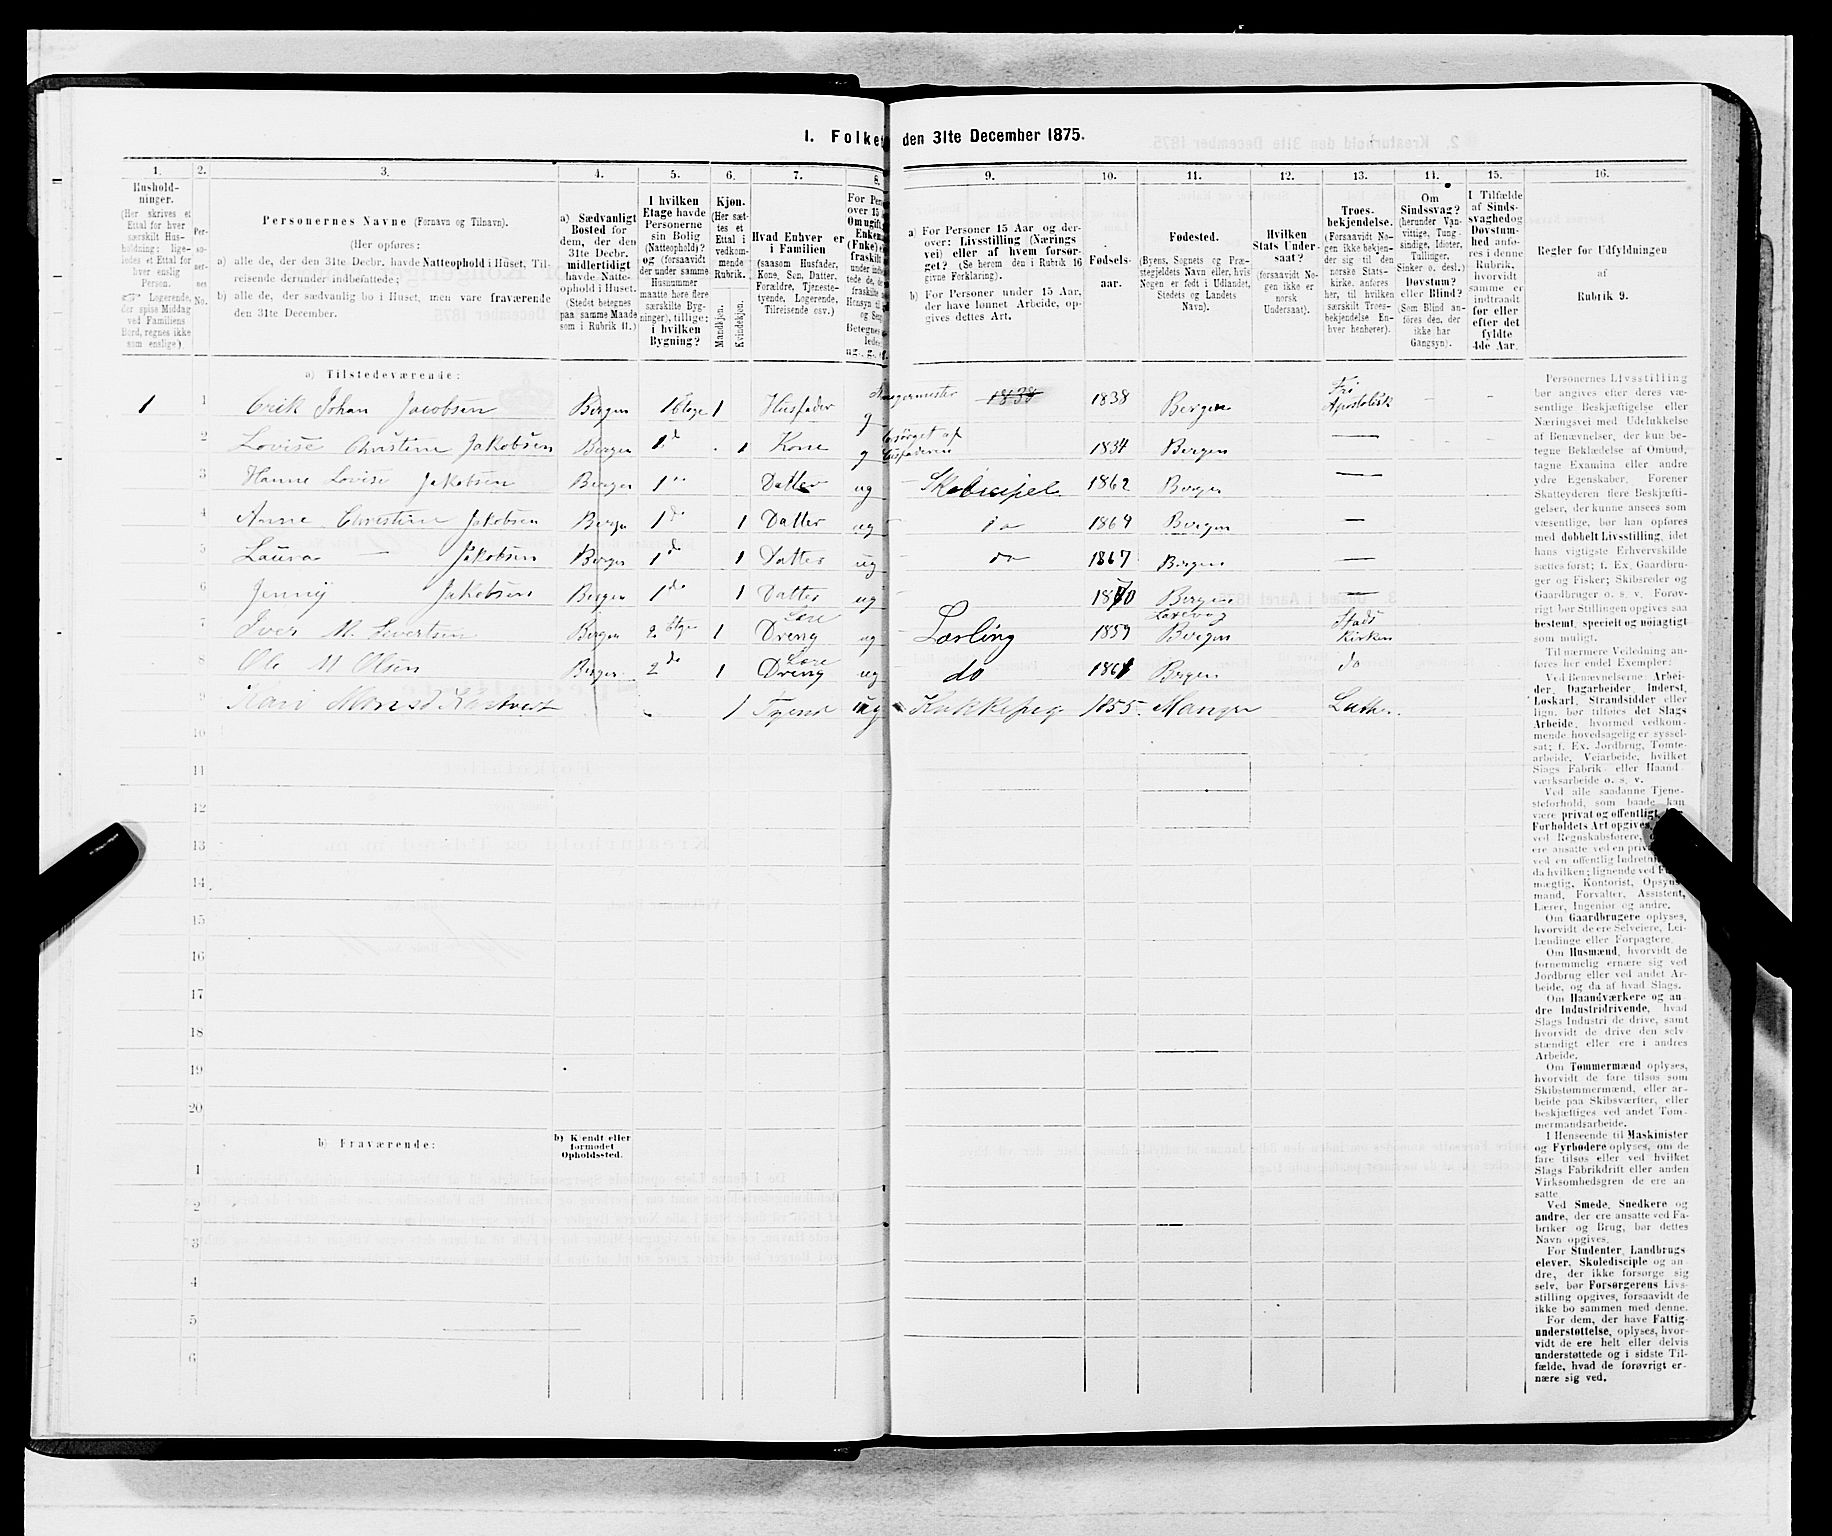 1. Folket den 31te December 1875.
1. 2. 3. 4. 5. 6. 7. 8. 9. 10. 11. 12. 13. 14. 15. 16.
Hushold-
ninger.
(Her skrives et
Ettal for hver
særskilt Hus-
holdning; lige-
ledes et Ettal for
hver enslig
Person.
☞ Logerende,
der spise Middag
ved Familiens
Bord, regnes ikke
som enslige.)
Per-
so-
ner-
nes
No.
Personernes Navne (Fornavn og Tilnavn).
(Her opføres:
a) alle de, der den 31te Decbr. havde Natteophold i Huset, Til-
reisende derunder indbefattede;
b) alle de, der sædvanlig bo i Huset, men vare fraværende
den 31te December.
a) Sædvanligt
Bosted for
dem, der den
31te Decbr.
midlertidigt
havde Natte-
ophold i Huset.
(Stedet betegnes
paa samme Maade
som i Rubrik 11.)
I hvilken
Etage havde
Personerne
sin Bolig
(Natteophold)?
og (forsaavidt
der under samme
Husnummer
maatte høre flere
særskilte Byg-
ninger), tillige:
i hvilken
Bygning?
Kjøn.
(Her sæt-
tes et
Ettal i
vedkom-
mende
Rubrik.
Mandkjøn.
Kvindekjøn.
Hvad Enhver er
i Familien
(saasom Husfader,
Kone, Søn, Datter,
Forældre, Tjeneste-
tyende, Logerende,
Tilreisende osv.)
a) For Personer 15 Aar og der-
over: Livsstilling (Nærings
vei) eller af hvem forsør-
get? (Se herom den i Rubrik 16
givne Forklaring).
b) For Personer under 15 Aar,
der have lønnet Arbeide, op-
gives dettes Art.
Fødsels-
aar.
Fødested.
(Byens, Sognets og Præ-
stegjeldets Navn eller, hvis
Nogen er født i Udlandet,
Stedets og Landets
Navn).
Hvilken
Stats Under-
saat?
(forsaavidt No-
gen ikke er
norsk
Undersaat).
Troes-
bekjendelse.
(Forsaavidt No-
gen ikke bekjen-
der sig til den
norske Stats-
kirke, anføres
her, til hvilken
særskilt Troes-
bekjendelse En-
hver henhører).
Om
Sindssvag?
(herunder Van-
vittige, Tung-
sindige, Idioter,
Tullinger,
Sinker o. desl.)
Døvstum?
eller Blind?
(Som Blind an-
føres den, der
ikke har
Gangsyn).
I Tilfælde
af Sinds-
svaghed og
Døvstum-
hed anfø-
res i denne
Rubrik,
hvorvidt
samme er
indtraadt
før eller
efter det
fyldte
4de Aar.
Regler for Udfyldningen
af
Rubrik 9.
a) Tilstedeværende:
1 1 Erik Johan Jacobsen Bergen 1 Etage 1 Husfader g 1838 1838 Bergen Fri Apostolisk
2 Lovise Christine Jakobsen Bergen 1 do 1 Kone g forsørget af Husfaderen 1834 Bergen —
3 Hanne Lovise Jakobsen Bergen 1 " Datter ug 1862 Bergen —
4 Anne Christine Jakobsen Bergen 1 do 1 Datter ug do 1864 Bergen —
5 Laura — Jakobsen Bergen 1 do 1 Datter ug do 1867 Bergen —
6 Jenny Jakobsen Bergen 1 do 1 Datter ug 1870 Bergen —
7 Iver M. Sivertsen Bergen 2 Etge 1 Lære Dreng ug Lærling 1859 Laxevaag Bergen Stads Kirken
8 Ole M Olsen Bergen 2 do 1 Lære Dreng ug do 1861 Bergen do
9 Kari 1 Tyend ug Kokkepeg 1855 Manger Luth.
10
11
12
13
14
15
16
17
18
19
20
b) Fraværende:
b) Kjendt eller
formodet
Opholdssted.
1
2
3
4
5
6
Personernes Livsstilling
bør angives efter deres væ-
sentlige Beskjæftigelse eller
Næringsvei med Udelukkelse
af Benævnelser, der kun be-
tegne Beklædelse af Ombud,
tagne Examina eller andre
ydre Egenskaber. Forener
Skatteyderen flere Beskjæfti-
gelser, der kunne ansees som
væsentlige, bør han opføres
med dobbelt Livsstilling, idet
hans vigtigste Erhvervskilde
sættes først; f. Ex. Gaardbru-
ger og Fisker; Skibsreder og
Gaardbruger o. s. v. Forøv-
rigt bør Stillingen opgives saa
bestemt, specielt og nøiagtigt
som muligt.
Til nærmere Veiledning an-
føres her endel Exempler:
Ved Benævnelserne Arbei-
der, Dagarbeider, Inderst,
Løskarl, Strandsidder eller
lign. bør tilføies det Slags
Arbeide, hvormed vedkom-
mende hovedsagelig er syssel-
sat; f. Ex. Jordbrug, Tomte-
arbeide, Veiarbeide, hvilket
Slags Fabrik- eller Haand-
værksarbeide o. s. v.
Ved alle saadanne Tjene-
steforhold, som baade kan
være privat og offentligt, bør
Forholdets Art opgives,
ved Regnskabsførere,
ere ansatte ved en priv
ved en offentlig Indretn
da hvilken; lignende ved Fu
mægtig, Kontorist, Opsyns-
mand, Forvalter, Assistent,
Lærer, Ingeniør og andre.
Om Gaardbrugere oplyses,
hvorvidt de ere Selveiere, Lei-
lændinge eller Forpagtere.
Om Husmænd, hvorvidt de
fornemmelig ernære sig ved
Jordbrug eller ved andet Ar-
beide, og da af hvad Slags.
Om Haandværkere og an-
dre Industridrivende, hvad
Slags Industri de drive, samt
hvorvidt de drive den selv-
stændigt eller ere i andres
Arbeide.
Om Tømmermænd oplyses,
hvorvidt de fare tilsøs som
Skibstømmermænd, eller ar-
beide paa Skibsværfter, eller
beskjæftiges ved andet Tøm-
mermandsarbeide.
I Henseende til Maskinister
og Fyrbødere oplyses, om de
fare tilsøs eller ved hvilket
Slags Fabrikdrift eller anden
Virksomhedsgren de ere an-
satte.
Ved Smede, Snedkere og
andre, der ere ansatte ved Fa-
briker og Brug, bør dettes
Navn opgives.
For Studenter, Landbrugs
elever, Skoledisciple og an-
dre, der ikke forsørge sig
selv, bør Forsørgerens Livs-
stilling opgives, forsaavidt de
ikke bo sammen med denne.
For dem, der have Fattig-
understøttelse, oplyses, hvor-
vidt de ere helt eller delvis
understøttede og i sidste Til-
fælde, hvad de forøvrigt er-
nære sig ved.